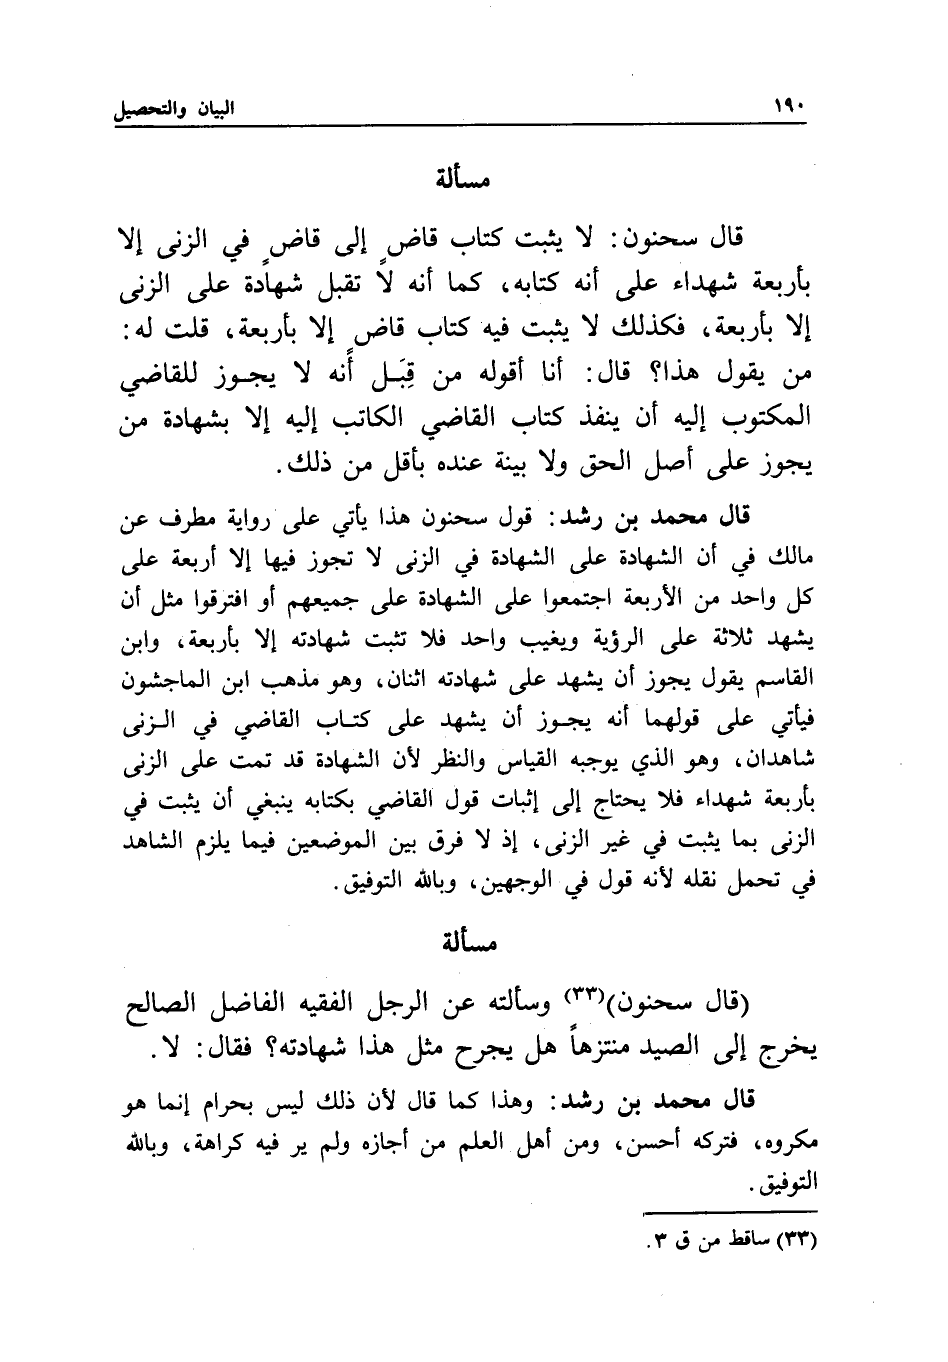 ١٩٠
البيان والتحصيل
مسألة
قال سحنون: لا يثبت كتاب قاضٍ إلى قاضٍ في الزنى إلا
بأربعة شهداء على أنه كتابه، كما أنه لا تقبل شهادة على الزنى
إلا بأربعة، فكذلك لا يثبت فيه كتاب قاضٍ إلا بأربعة، قلت له:
من يقول هذا؟ قال: أنا أقوله من قِبَل أنه لا يجوز للقاضي
المكتوب إليه أن ينفذ كتاب القاضي الكاتب إليه إلا بشهادة من
يجوز على أصل الحق ولا بينة عنده بأقل من ذلك.
قال محمد بن رشد: قول سحنون هذا يأتي على رواية مطرف عن
مالك في أن الشهادة على الشهادة في الزنى لا تجوز فيها إلا أربعة على
كل واحد من الأربعة اجتمعوا على الشهادة على جميعهم أو افترقوا مثل أن
يشهد ثلاثة على الرؤية ويغيب واحد فلا تثبت شهادته إلا بأربعة، وابن
القاسم يقول يجوز أن يشهد على شهادته اثنان، وهو مذهب ابن الماجشون
فيأتي على قولهما أنه يجوز أن يشهد على كتاب القاضي في الزنى
شاهدان، وهو الذي يوجبه القياس والنظر لأن الشهادة قد تمت على الزنى
بأربعة شهداء فلا يحتاج إلى إثبات قول القاضي بكتابه ينبغي أن يثبت في
الزنى بما يثبت في غير الزنى، إذ لا فرق بين الموضعين فيما يلزم الشاهد
في تحمل نقله لأنه قول في الوجهين، وبالله التوفيق.
مسألة
(قال سحنون)(٣٣) وسألته عن الرجل الفقيه الفاضل الصالح
يخرج إلى الصيد منتزهاً هل يجرح مثل هذا شهادته؟ فقال: لا.
قال محمد بن رشد: وهذا كما قال لأن ذلك ليس بحرام إنما هو
مكروه، فتركه أحسن، ومن أهل العلم من أجازه ولم ير فيه كراهة، وبالله
التوفيق.
(٣٣) ساقط من ق ٣.